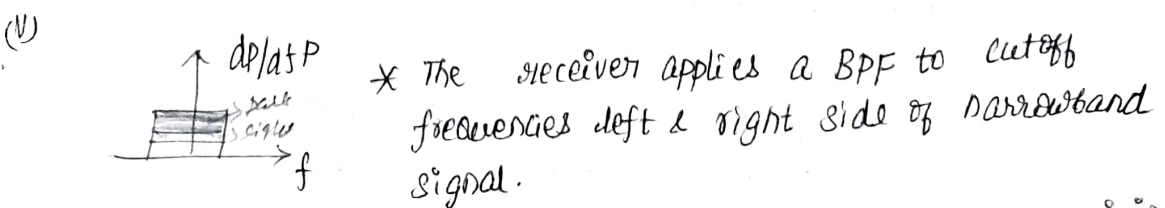 (V)
dP/df P
* The receiver applies a BPF to cutoff
frequencies left & right side of narrowband
signal.
f